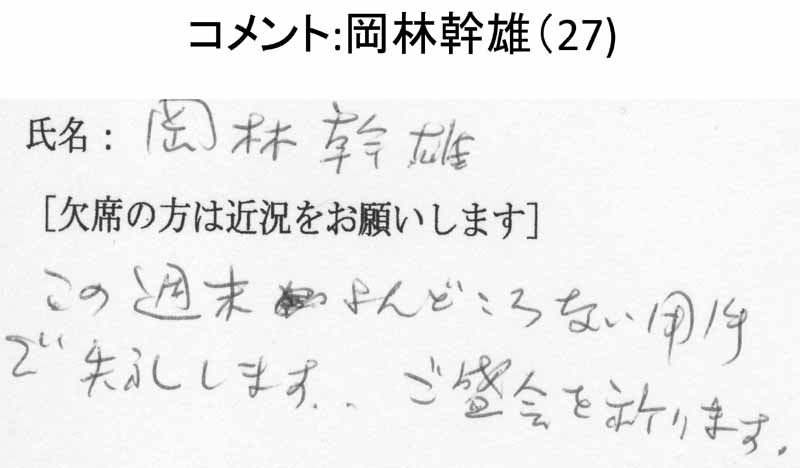 コメント:岡林幹雄（27)
氏名： 岡林幹雄
［欠席の方は近況をお願いします］
この週末 よんどころない用件
で失礼します.. ご盛会を祈ります。